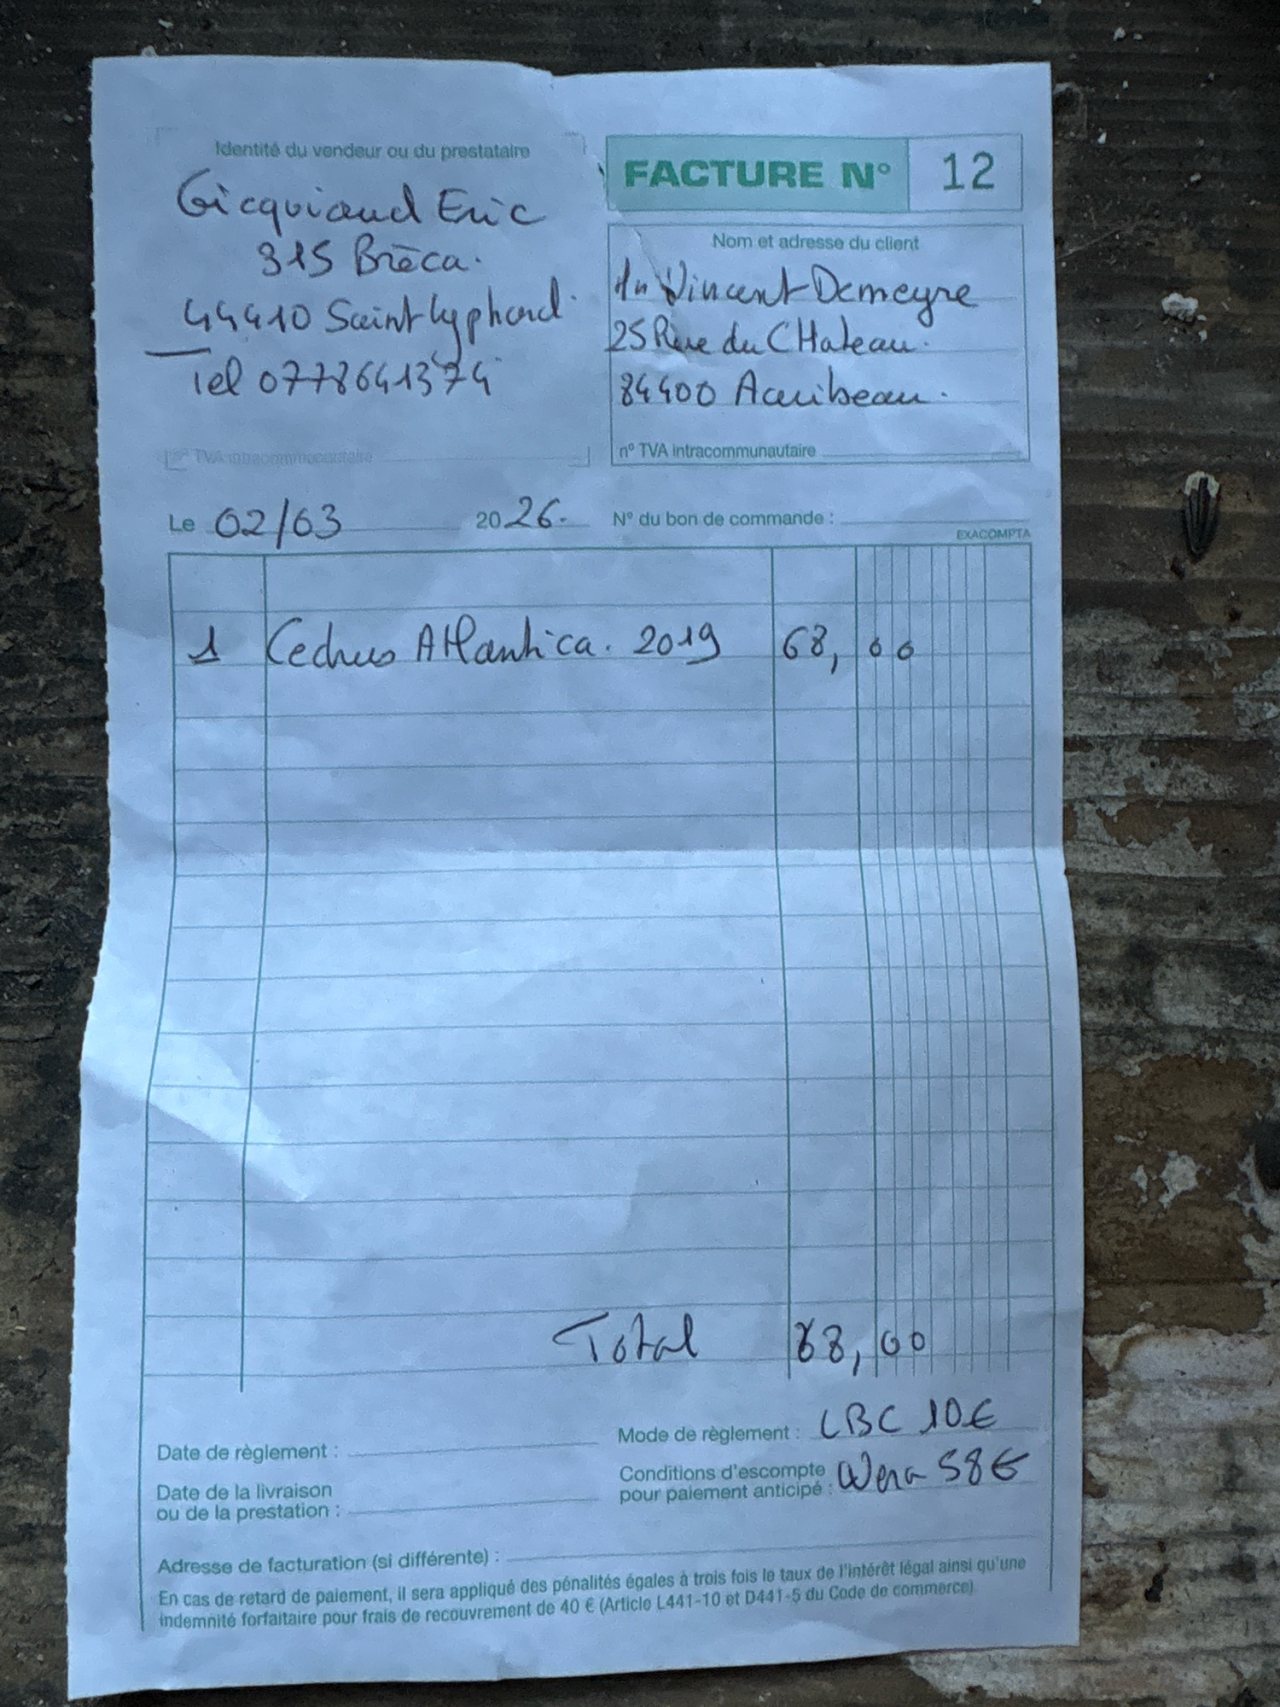 Identité du vendeur ou du prestataire
Gicquiaud Eric
315 Brèca.
44410 Saint Lyphard.
Tel 0778641374
n° TVA intracommunautaire
FACTURE N° 12
Nom et adresse du client
Mr Vincent Demeyre
25 Rue du CHateau.
84400 Auribeau.
n° TVA intracommunautaire
Le 02/03 2026. N° du bon de commande :
EXACOMPTA
1 Cedrus Atlantica. 2019 68,00
Total 68,00
Date de règlement :
Mode de règlement : LBC 10€
Date de la livraison
ou de la prestation :
Conditions d'escompte
pour paiement anticipé : Wero 58€
Adresse de facturation (si différente) :
En cas de retard de paiement, il sera appliqué des pénalités égales à trois fois le taux de l'intérêt légal ainsi qu'une
indemnité forfaitaire pour frais de recouvrement de 40 € (Article L441-10 et D441-5 du Code de commerce).